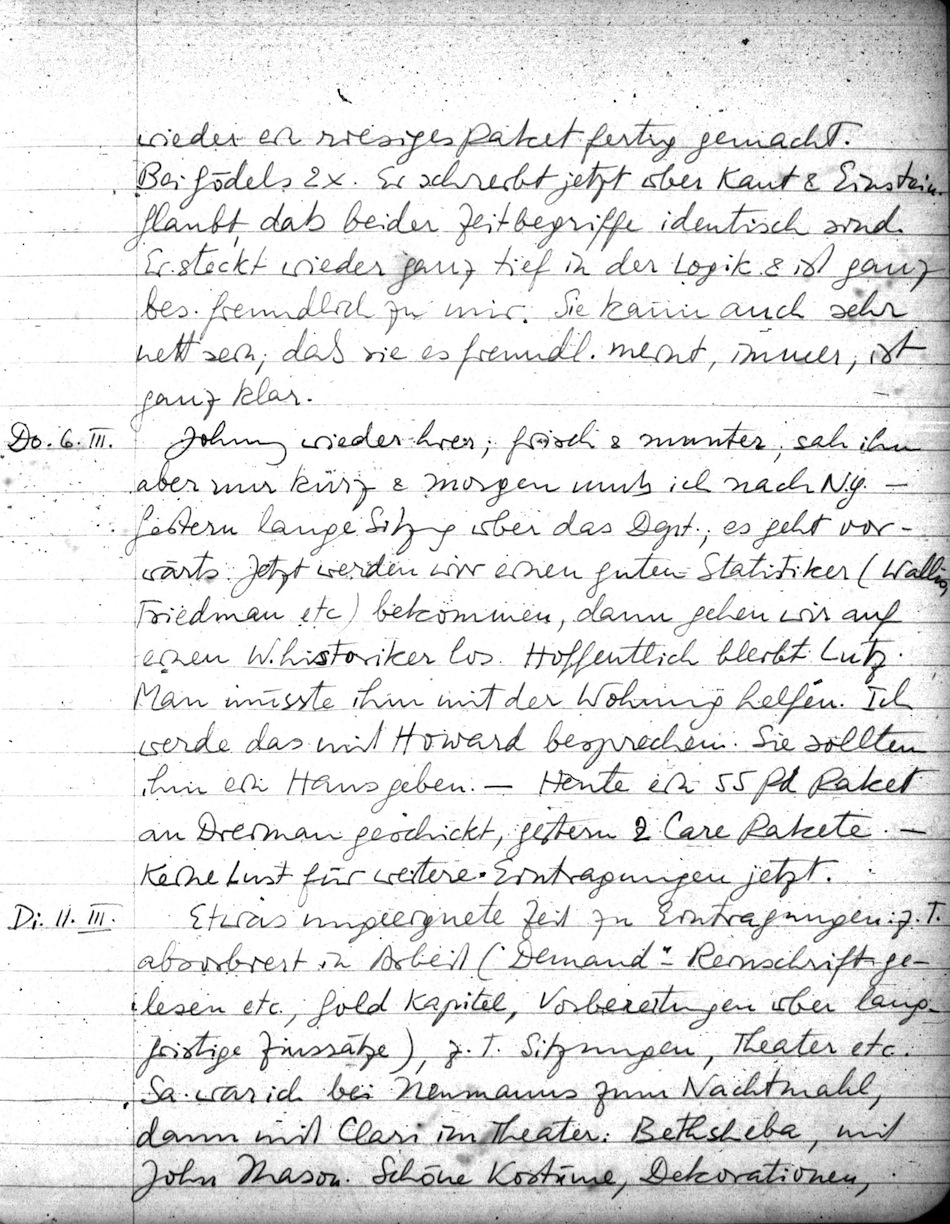 wieder ein riesiges Paket fertig gemacht.
Bei Gödels 2x. Er schreibt jetzt über Kant & Einstein.
Glaubt, daß beider Zeitbegriffe identisch sind.
Er steckt wieder ganz tief in der Logik & ist ganz
bes. freundlich zu mir. Sie kann auch sehr
nett sein; daß sie es freundl. meint, immer, ist
ganz klar.
Do. 6. III. Johnny wieder hier; frisch & munter; sah ihn
aber nur kurz & morgen muß ich nach N.Y. —
Gestern lange Sitzg über das Dept.; es geht vor-
wärts. Jetzt werden wir einen guten Statistiker (Wallis,
Friedman etc) bekommen, dann gehen wir auf
einen W.historiker los. Hoffentlich bleibt Lutz.
Man müsste ihm mit der Wohnung helfen. Ich
werde das mit Howard besprechen. Sie sollten
ihm ein Haus geben. — Heute ein 55 Pd Paket
an Dreiman geschickt, gestern 2 Care Pakete. —
Keine Lust für weitere Eintragungen jetzt.
Di. 11. III. Etwas ungeeignete Zeit zu Eintragungen: z.T.
absorbiert in Arbeit ("Demand"- Reinschrift ge-
lesen etc., Gold Kapitel, Vorbereitungen über lang-
fristige Zinssätze), z.T. Sitzungen, Theater etc.
Sa. war ich bei Neumanns zum Nachtmahl,
dann mit Clari im Theater: Bethsheba, mit
John Mason. Schöne Kostüme, Dekorationen,